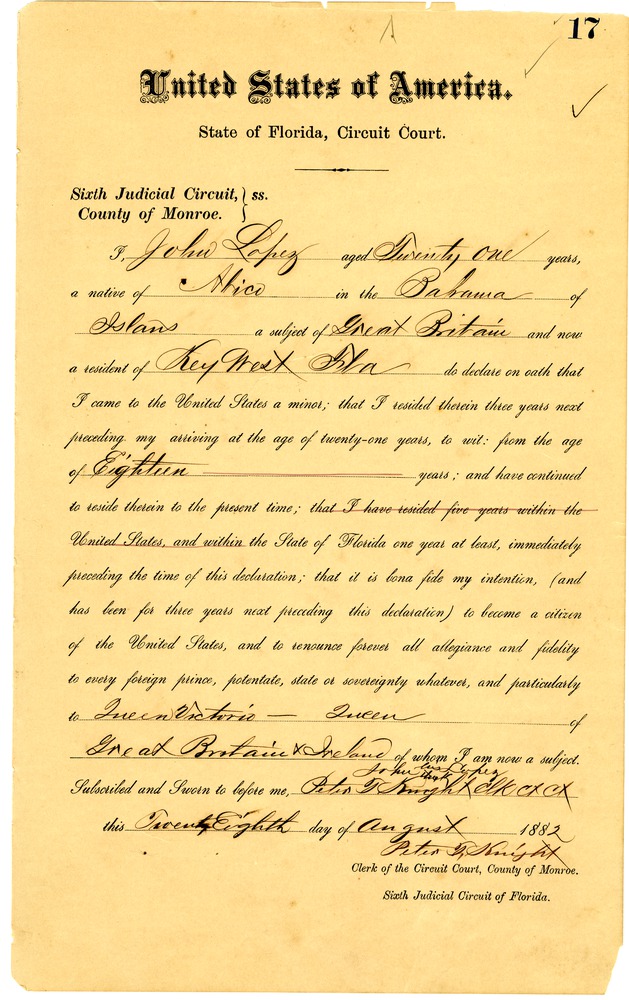 17
United States of America.
State of Florida, Circuit Court.
Sixth Judicial Circuit, } ss.
County of Monroe. }
I, John Lopez aged Twenty one years,
a native of Abico in the Bahama of
Islans a subject of Great Britain and now
a resident of Key West Fla do declare on oath that
I came to the United States a minor; that I resided therein three years next
preceding my arriving at the age of twenty-one years, to wit: from the age
of Eighteen years; and have continued
to reside therein to the present time; that I have resided five years within the
United States, and within the State of Florida one year at least, immediately
preceding the time of this declaration; that it is bona fide my intention, (and
has been for three years next preceding this declaration) to become a citizen
of the United States, and to renounce forever all allegiance and fidelity
to every foreign prince, potentate, state or sovereignty whatever, and particularly
to Queen Victoria — Queen of
Great Britain & Ireland of whom I am now a subject.
John his Lopez
mark
Subscribed and Sworn to before me, Peter T Knight Clk
this Twenty Eighth day of August 1882
Peter T. Knight
Clerk of the Circuit Court, County of Monroe.
Sixth Judicial Circuit of Florida.